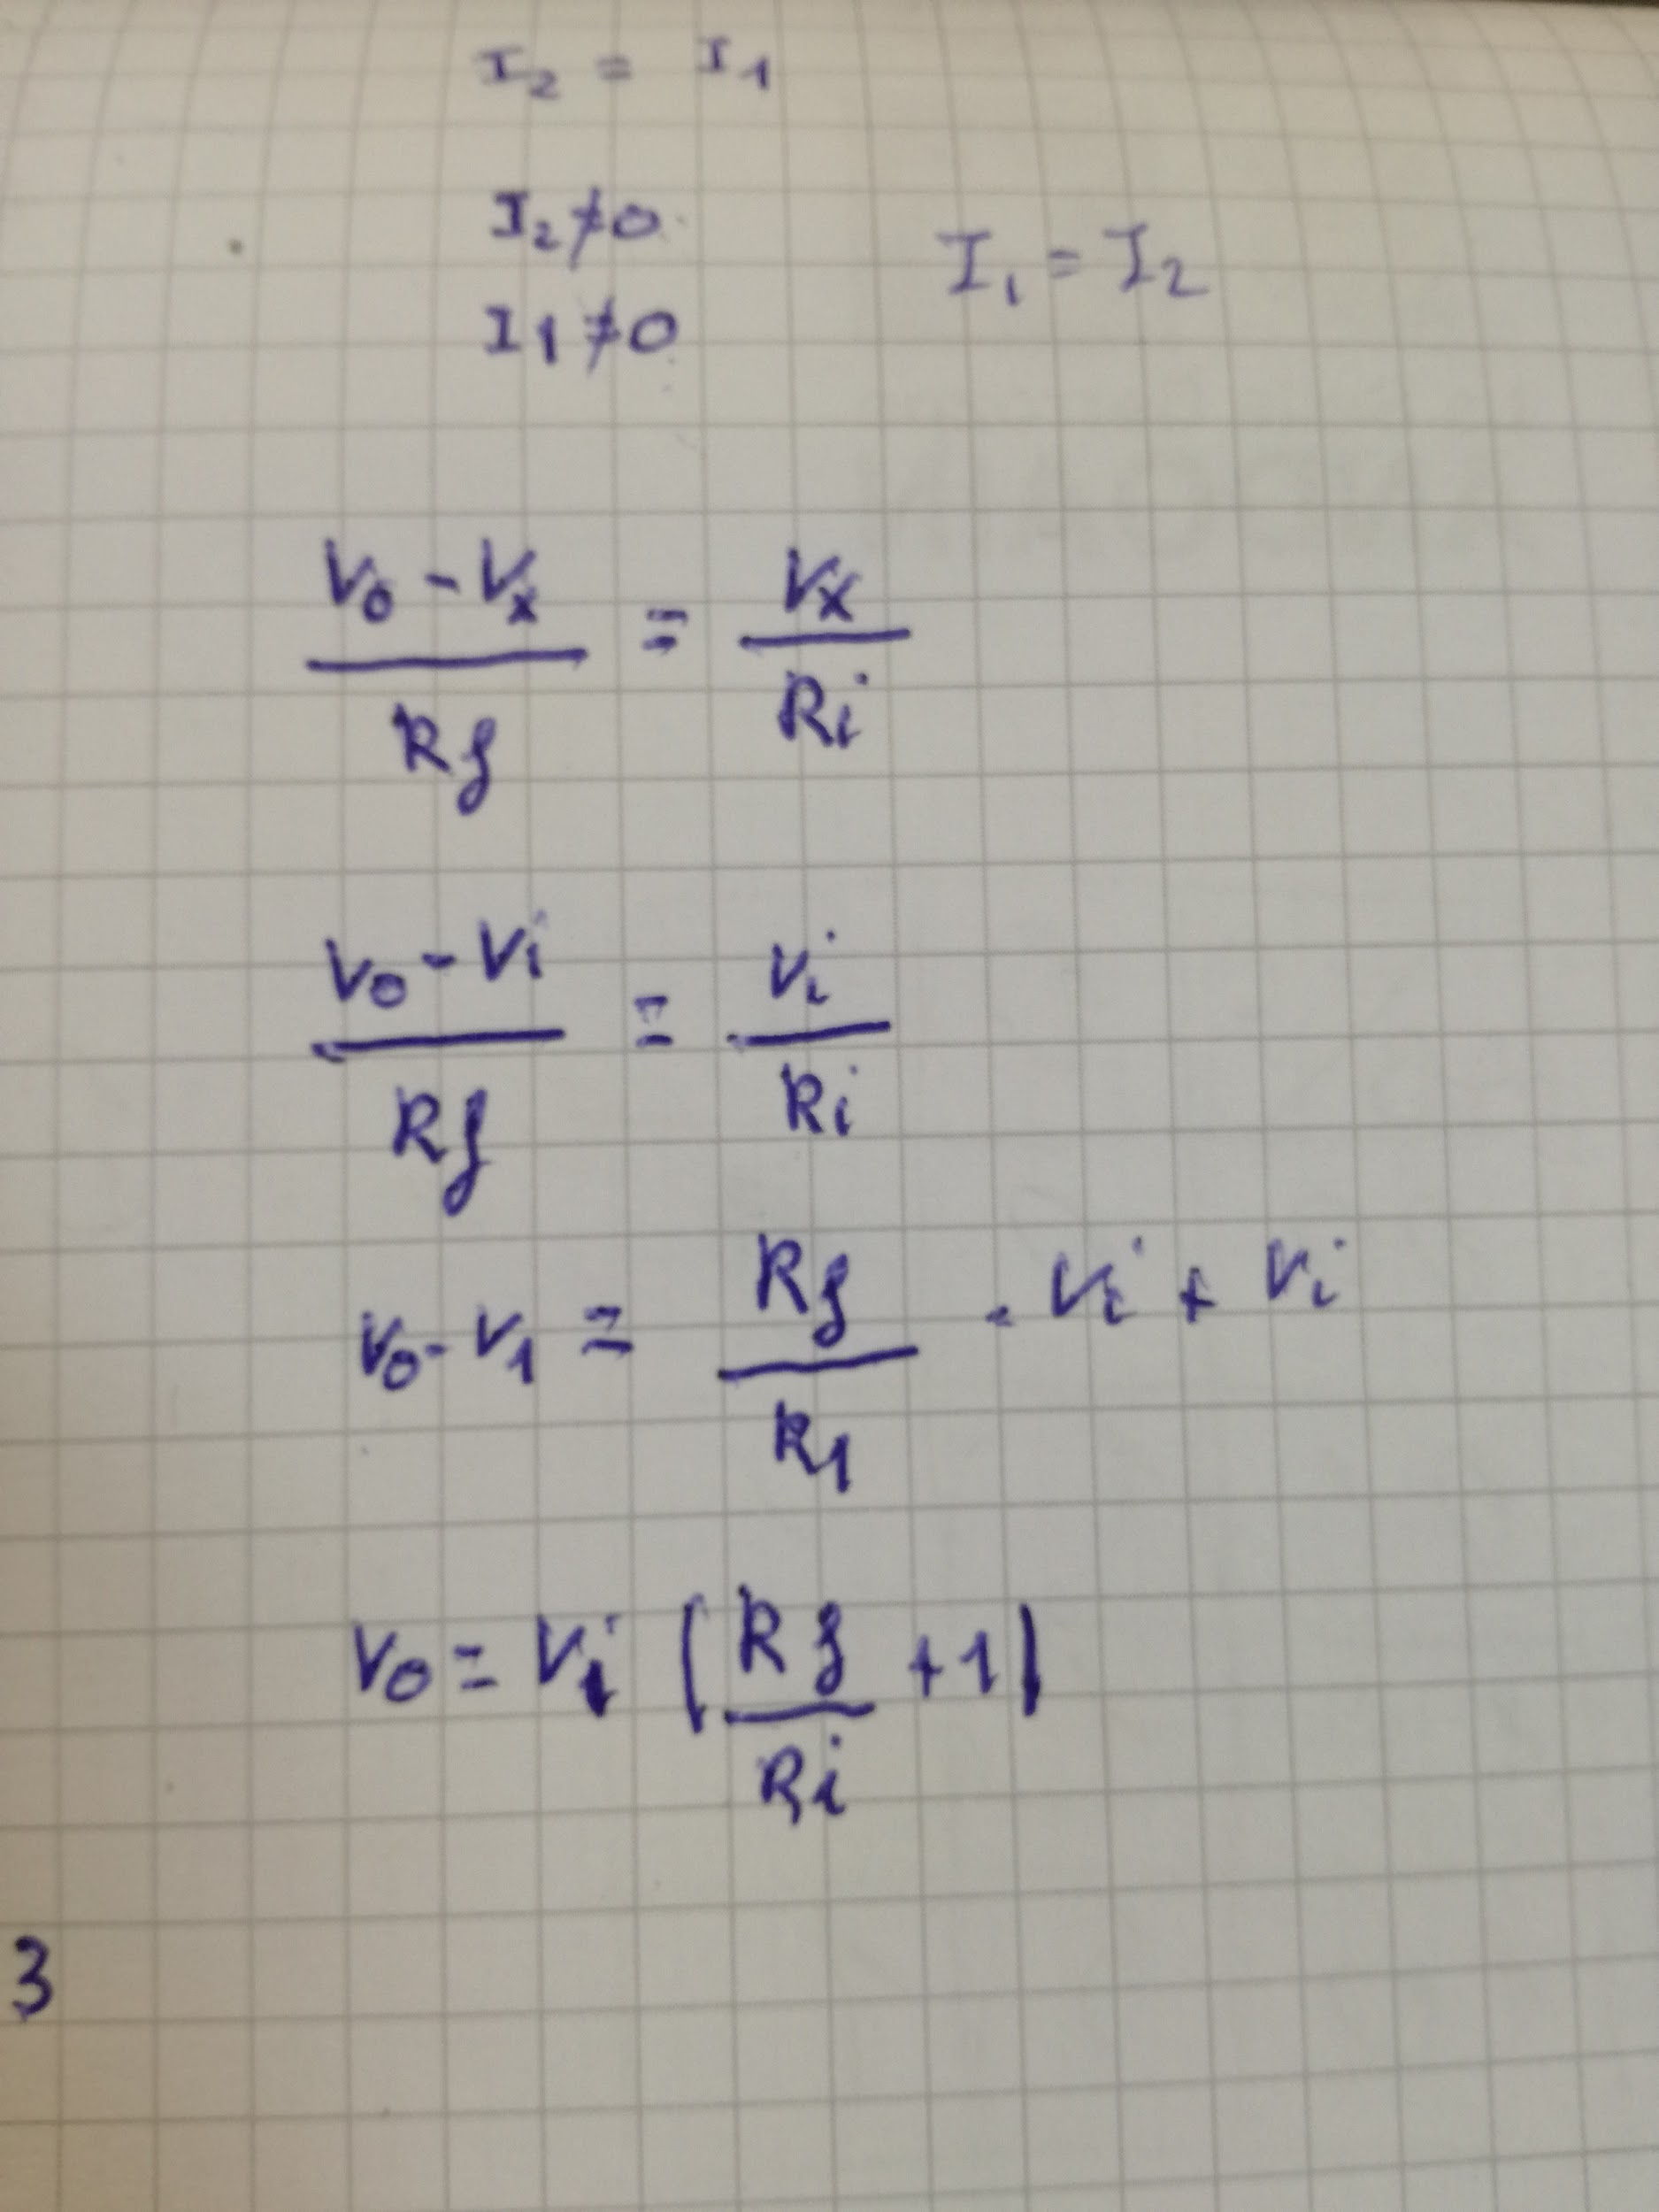 I₂ = I₁
I₂ ≠ 0
I₁ = I₂
I1 ≠ 0
V₀ - Vₓ / Rf = Vx / Ri
V₀ - Vi / Rf = Vi / Ri
V₀ - V₁ = Rf / R₁ · Vi + Vi
V₀ = Vi (Rf / Ri + 1)
3